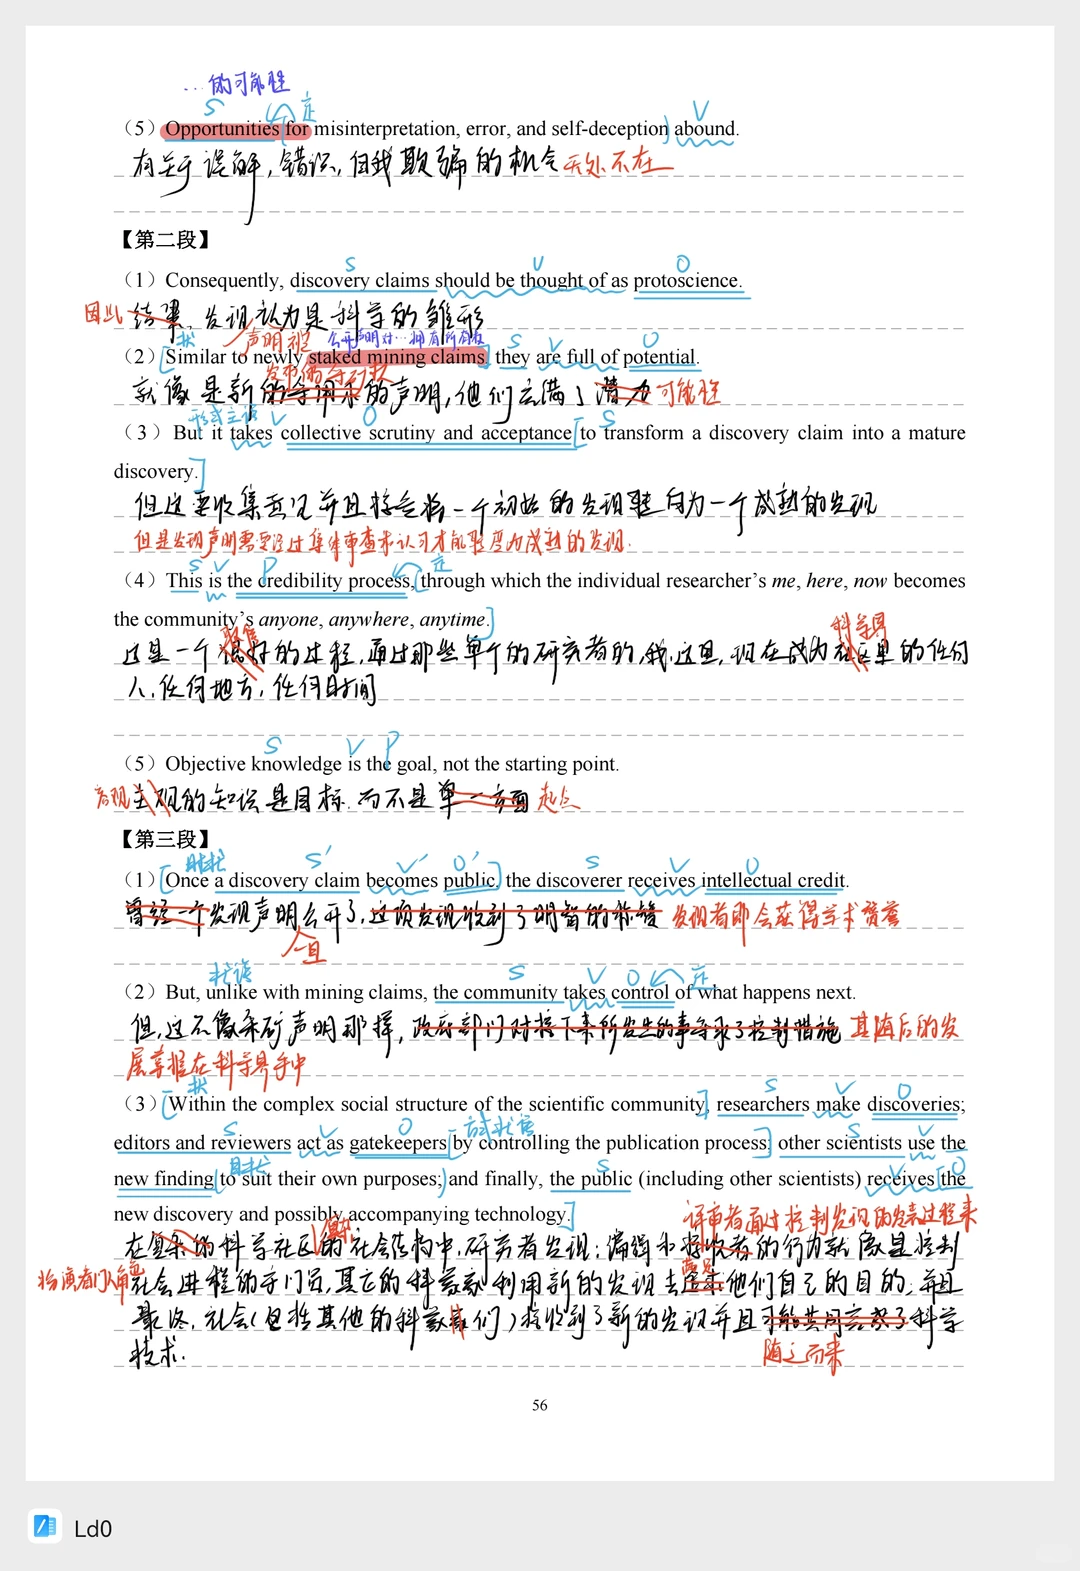 …的可能性
S 定 V
（5）Opportunities for misinterpretation, error, and self-deception abound.
有关于误解，错误，自我欺骗的机会 无处不在
【第二段】
S V O
（1）Consequently, discovery claims should be thought of as protoscience.
因此 结果，发现认为是科学的雏形
状 声明被 公开声明对…拥有所有权 S V O
（2）Similar to newly staked mining claims, they are full of potential.
就像是新的 的声明，他们充满了潜力 可能性
形式主语 V O S
（3）But it takes collective scrutiny and acceptance to transform a discovery claim into a mature
discovery.
但这要收集意见并且接受将一个初始的发现转向为一个成熟的发现
但是发现声明需要经过集体审查和认可才能转变为成熟的发现.
S V P 定
（4）This is the credibility process, through which the individual researcher's me, here, now becomes
the community's anyone, anywhere, anytime.
科学界
这是一个 的过程，通过那些单个的研究者的，我，这里，现在成为在这里的任何
人，任何地方，任何时间
S V P
（5）Objective knowledge is the goal, not the starting point.
客观 主观的知识是目标，而不是单一方面 起点
【第三段】
时状 S' V' O' S V O
（1）Once a discovery claim becomes public, the discoverer receives intellectual credit.
曾经一个发现声明公开了，这项发现收到了明智的称赞 发现者即会获得学术赞誉
一旦
状语 S V O 定
（2）But, unlike with mining claims, the community takes control of what happens next.
但，这不像采矿声明那样，政府部门对接下来所发生的事采取了控制措施 其随后的发
展掌握在科学界手中
状 S V O
（3）Within the complex social structure of the scientific community, researchers make discoveries;
S V O 方式状语 S V
editors and reviewers act as gatekeepers by controlling the publication process; other scientists use the
目的状 S V O
new finding to suit their own purposes; and finally, the public (including other scientists) receives the
new discovery and possibly accompanying technology.
评审者通过控制发现的发表过程来
在复杂的科学社区的社会结构中，研究者发现；编辑和接收者的行为就像是控制
扮演者门人角色
社会进程的守门员，其它的科学家利用新的发现去 满足 他们自己的目的；并且
最终，社会（包括其他的科学家们）接收到了新的发现并且可能共同完成了科学
技术. 随之而来
56
Ld0